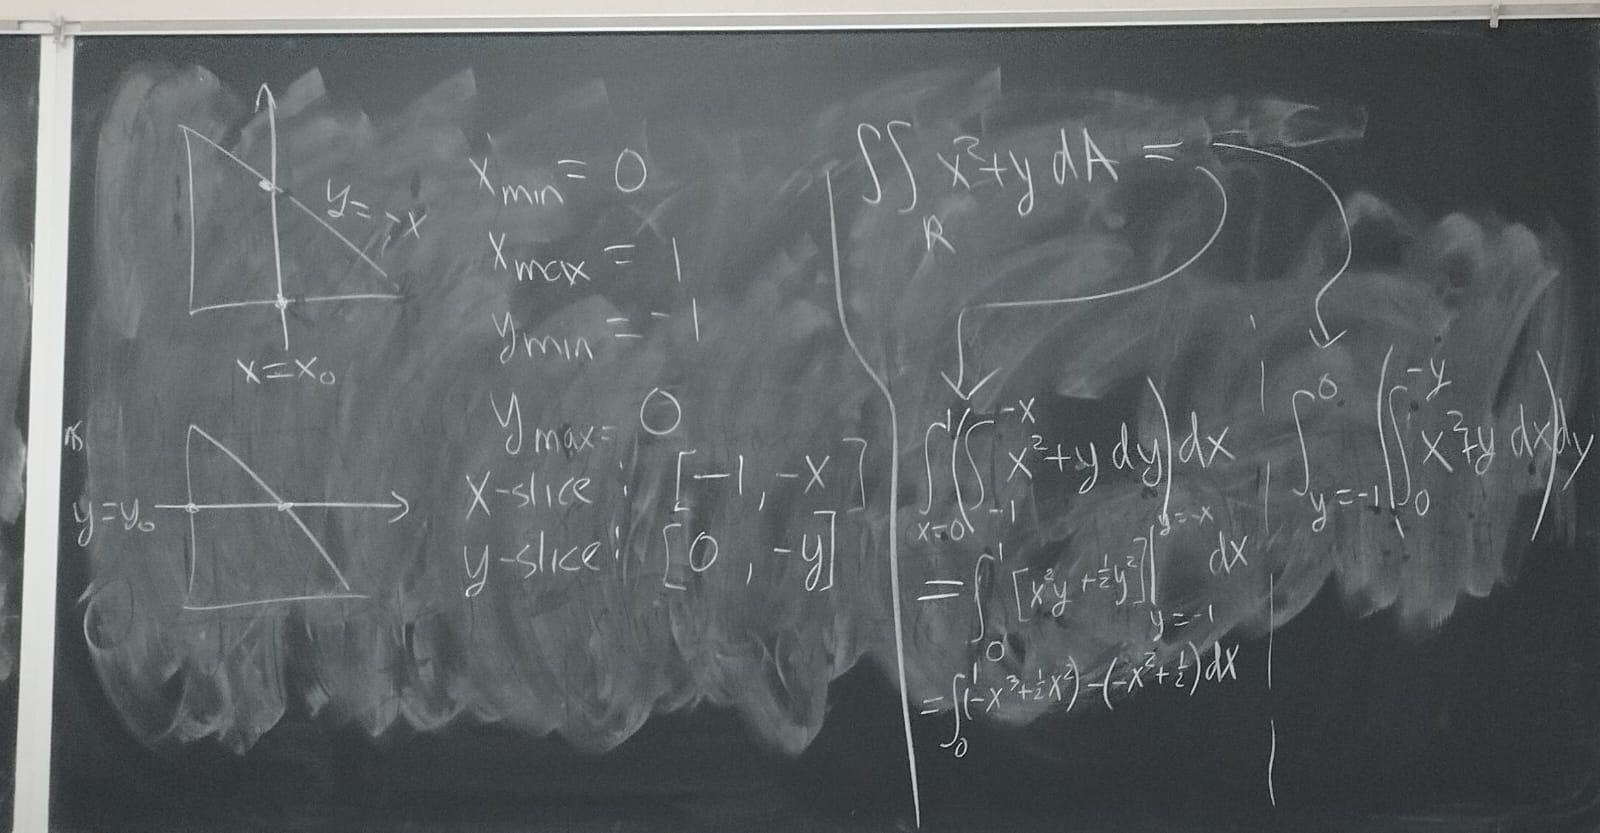 y = -x
x = x₀
y = y₀
x_min = 0
x_max = 1
y_min = -1
y_max = 0
x-slice: [-1, -x]
y-slice: [0, -y]
∬_R x²+y dA =
∫_{x=0}^{1} (∫_{-1}^{-x} x²+y dy) dx
= ∫_0^1 [x²y + ½y²] |_{y=-1}^{y=-x} dx
= ∫_0^1 (-x³ + ½x²) - (-x² + ½) dx
∫_{y=-1}^{0} (∫_0^{-y} x²+y dx) dy